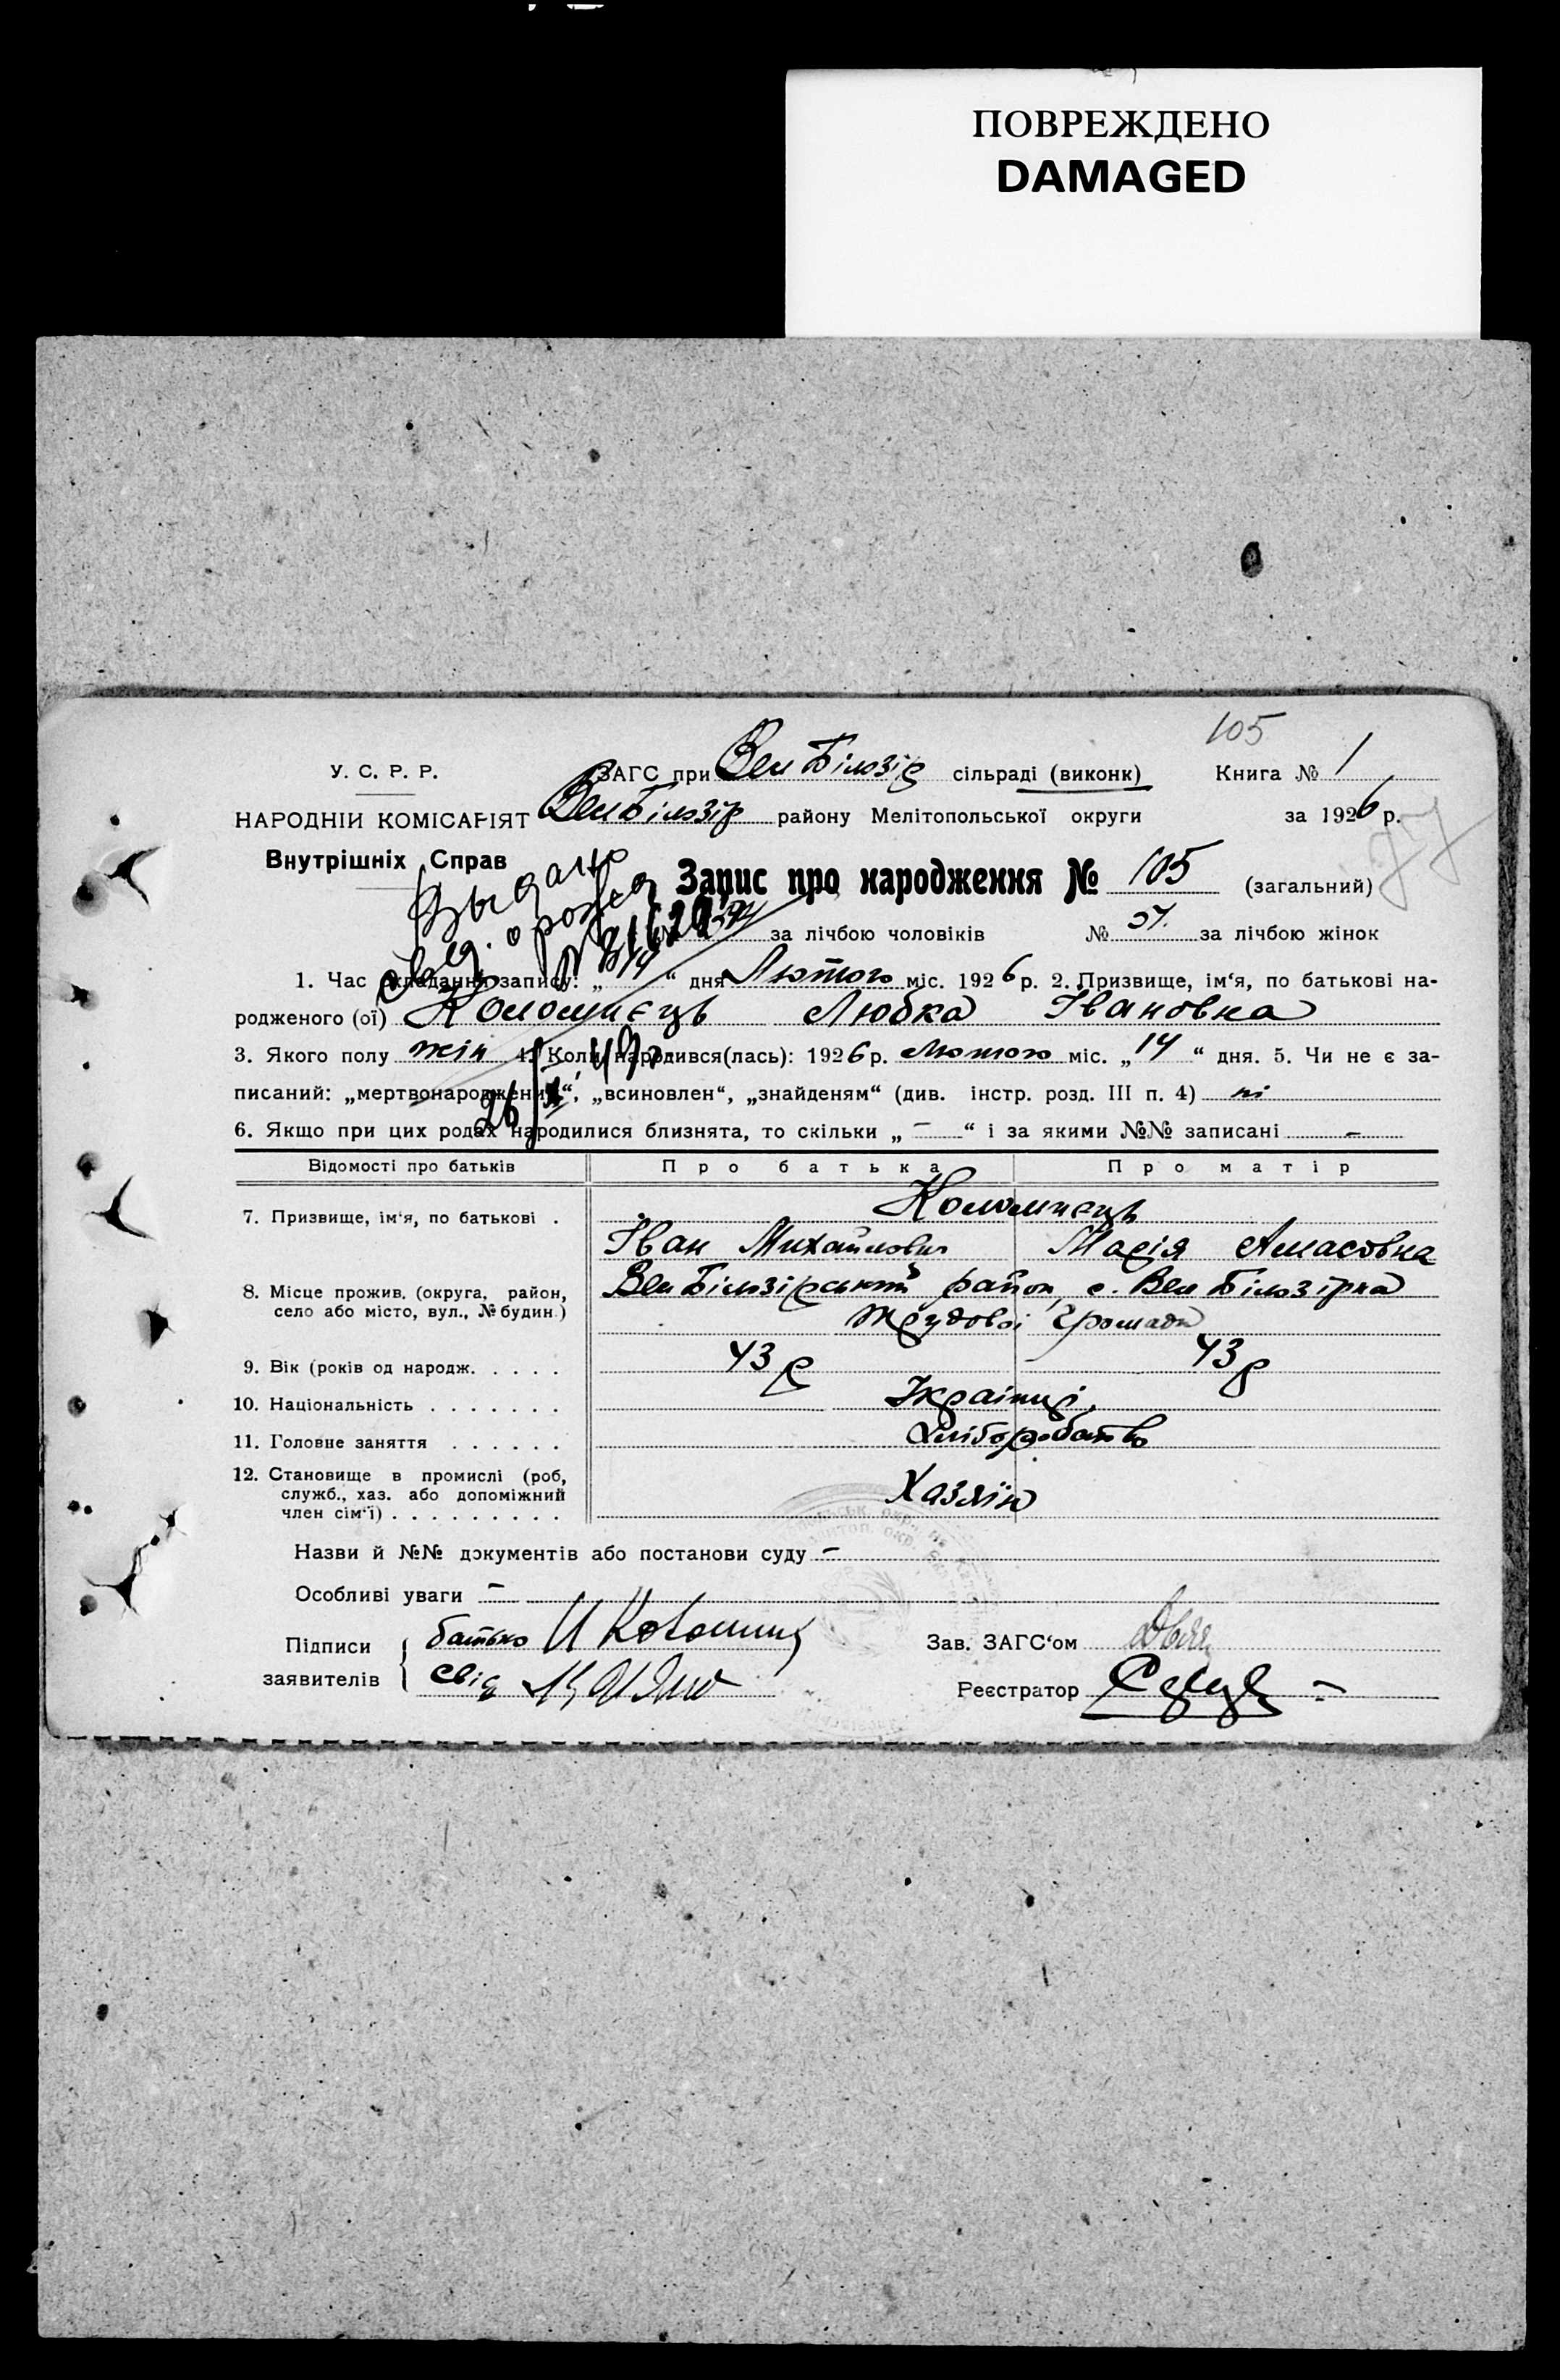 ПОВРЕЖДЕНО
DAMAGED
105
У. С. Р. Р.
ЗАГС при Вел Білозір сільраді (виконк) Книга № 1
НАРОДНІЙ КОМІСАРІЯТ Вел Білозір району Мелітопольської округи за 1926 р.
Внутрішніх Справ
Выдано
свид. о рожд
Запис про народження № 105 (загальний)
за лічбою чоловіків № 57. за лічбою жінок
1. Час складання запису: „14“ дня Лютого міс. 1926 р. 2. Призвище, ім‘я, по батькові на-
родженого (ої) Коломиєць Любка Івановна
3. Якого полу жін 4. Коли народився(лась): 1926 р. Лютого міс. „14“ дня. 5. Чи не є за-
писаний: „мертвонароджений“, „всиновлен“, „знайденям“ (див. інстр. розд. III п. 4) ні
6. Якщо при цих родах народилися близнята, то скільки „ – “ і за якими №№ записані –
Відомості про батьків Про батька Про матір
7. Призвище, ім‘я, по батькові . Коломиєць
Іван Михайлович Марія Амасовна
8. Місце прожив. (округа, район, село або місто, вул., № будин.) Вел Білозірський район, с. Вел Білозірка
Трудової Громади
9. Вік (років од народж. . . . . 43 р 43 р
10. Національність . . . . . . . Українці
11. Головне заняття . . . . . . Хлібробатво
12. Становище в промислі (роб, служб., хаз. або допоміжний член сім‘ї) . . . . . . . . . Хазяїн
Назви й №№ документів або постанови суду –
Особливі уваги –
Підписи заявителів батько И Коломиец
свід
Зав. ЗАГС‘ом
Реєстратор